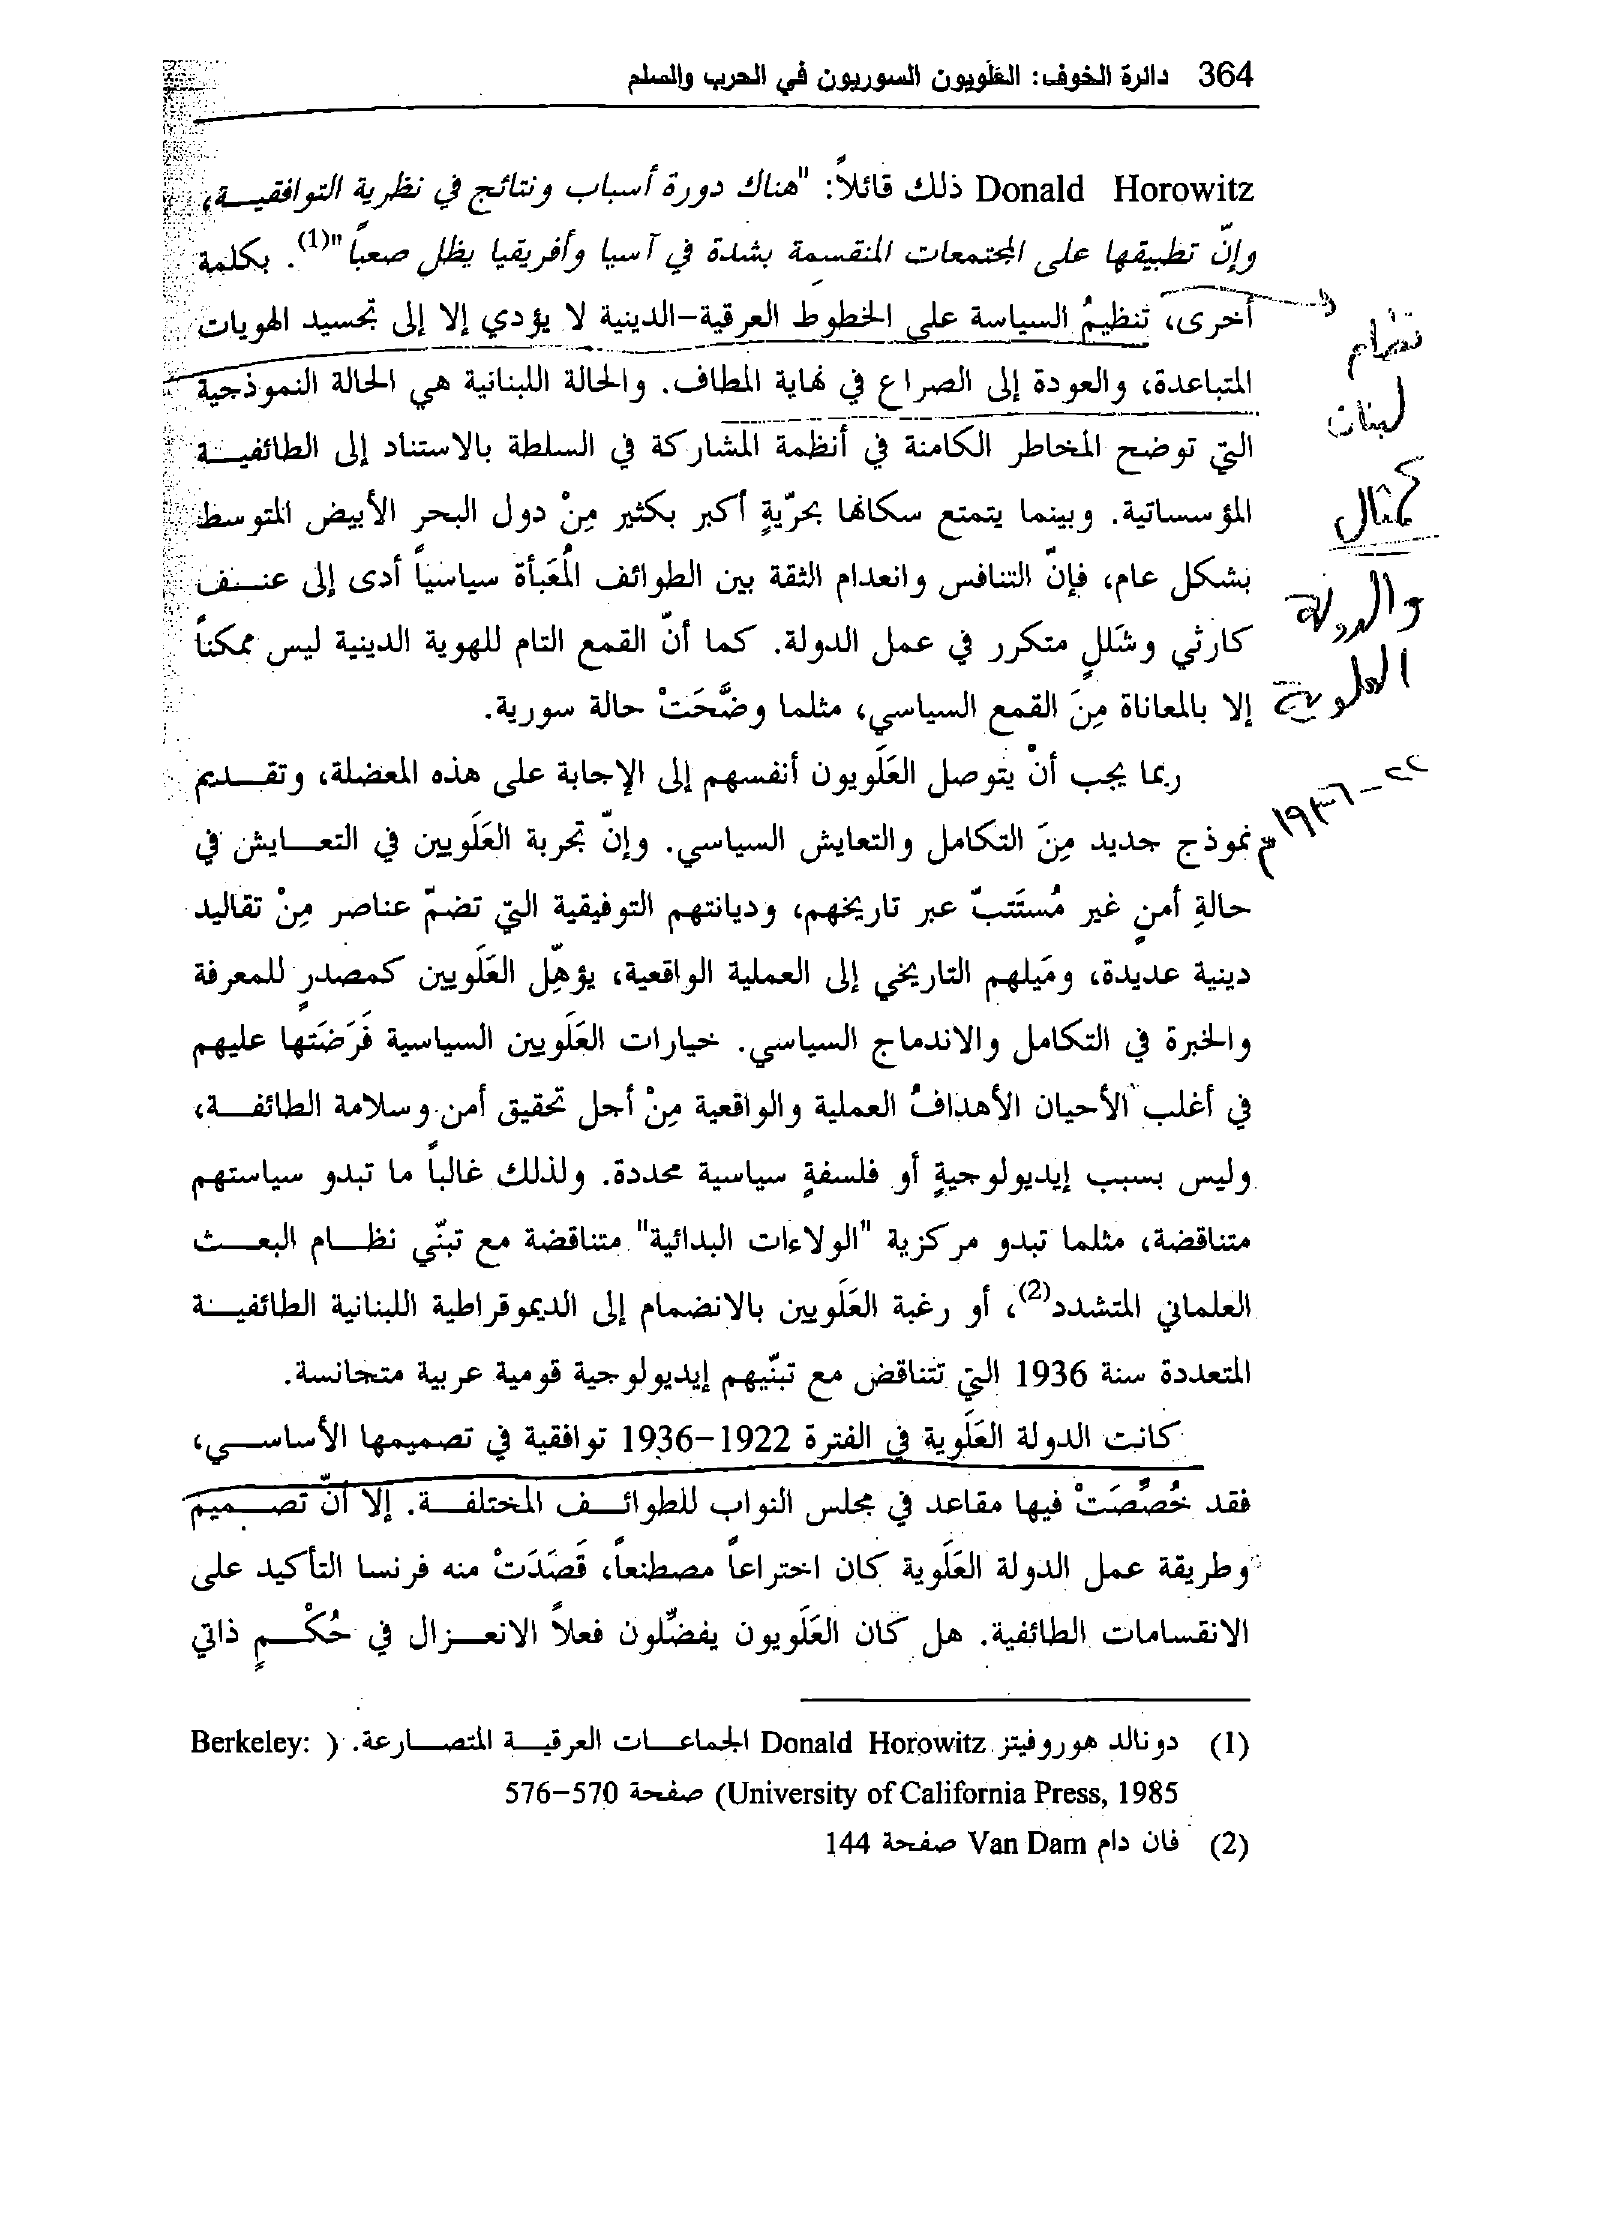 364 دائرة الخوف: العَلَويون السوريون في الحرب والسلم
Donald Horowitz ذلك قائلاً: "هناك دورة أسباب ونتائج في نظرية التوافقيــة،
وإنّ تطبيقها على المجتمعات المنقسِمة بشدة في آسيا وأفريقيا يظل صعباً"(1). بكلمة
أخرى، تنظيمُ السياسة على الخطوط العرقية-الدينية لا يؤدي إلا إلى تجسيد الهويات
المتباعدة، والعودة إلى الصراع في نهاية المطاف. والحالة اللبنانية هي الحالة النموذجية
التي توضح المخاطر الكامنة في أنظمة المشاركة في السلطة بالاستناد إلى الطائفيــة
المؤسساتية. وبينما يتمتع سكانها بحرّيةٍ أكبر بكثير مِنْ دول البحر الأبيض المتوسط
بشكل عام، فإنّ التنافس وانعدام الثقة بين الطوائف المُعَبأة سياسياً أدى إلى عنــف
كارثي وشَللٍ متكرر في عمل الدولة. كما أنّ القمع التام للهوية الدينية ليس ممكناً
إلا بالمعاناة مِنَ القمع السياسي، مثلما وضَّحَتْ حالة سورية.
ربما يجب أنْ يتوصل العَلَويون أنفسهم إلى الإجابة على هذه المعضلة، وتقــديم
نموذج جديد مِنَ التكامل والتعايش السياسي. وإنّ تجربة العَلَويين في التعــايش في
حالةِ أمنٍ غير مُستَتبّ عبر تاريخهم، وديانتهم التوفيقية التي تضمّ عناصر مِنْ تقاليد
دينية عديدة، ومَيلهم التاريخي إلى العملية الواقعية، يؤهِّل العَلَويين كمصدرٍ للمعرفة
والخبرة في التكامل والاندماج السياسي. خيارات العَلَويين السياسية فَرَضَتها عليهم
في أغلب الأحيان الأهدافُ العملية والواقعية مِنْ أجل تحقيق أمن وسلامة الطائفــة،
وليس بسبب إيديولوجيةٍ أو فلسفةٍ سياسية محددة. ولذلك غالباً ما تبدو سياستهم
متناقضة، مثلما تبدو مركزية "الولاءات البدائية" متناقضة مع تبنّي نظــام البعــث
العلماني المتشدد(2)، أو رغبة العَلَويين بالانضمام إلى الديموقراطية اللبنانية الطائفيــة
المتعددة سنة 1936 التي تتناقض مع تبنّيهم إيديولوجية قومية عربية متجانسة.
كانت الدولة العَلَوية في الفترة 1922-1936 توافقية في تصميمها الأساســي،
فقد خُصِّصَتْ فيها مقاعد في مجلس النواب للطوائــف المختلفــة. إلا أنّ تصــميم
وطريقة عمل الدولة العَلَوية كان اختراعاً مصطنعاً، قَصَدَتْ منه فرنسا التأكيد على
الانقسامات الطائفية. هل كان العَلَويون يفضّلون فعلاً الانعــزال في حُكْــمٍ ذاتي
نظام
لبنان
كمثال
والدولة
العلوية
٢٢-١٩٣٦م
(1) دونالد هوروفيتز Donald Horowitz الجماعــات العرقيــة المتصــارعة. ( Berkeley:
University of California Press, 1985) صفحة 570-576
(2) فان دام Van Dam صفحة 144